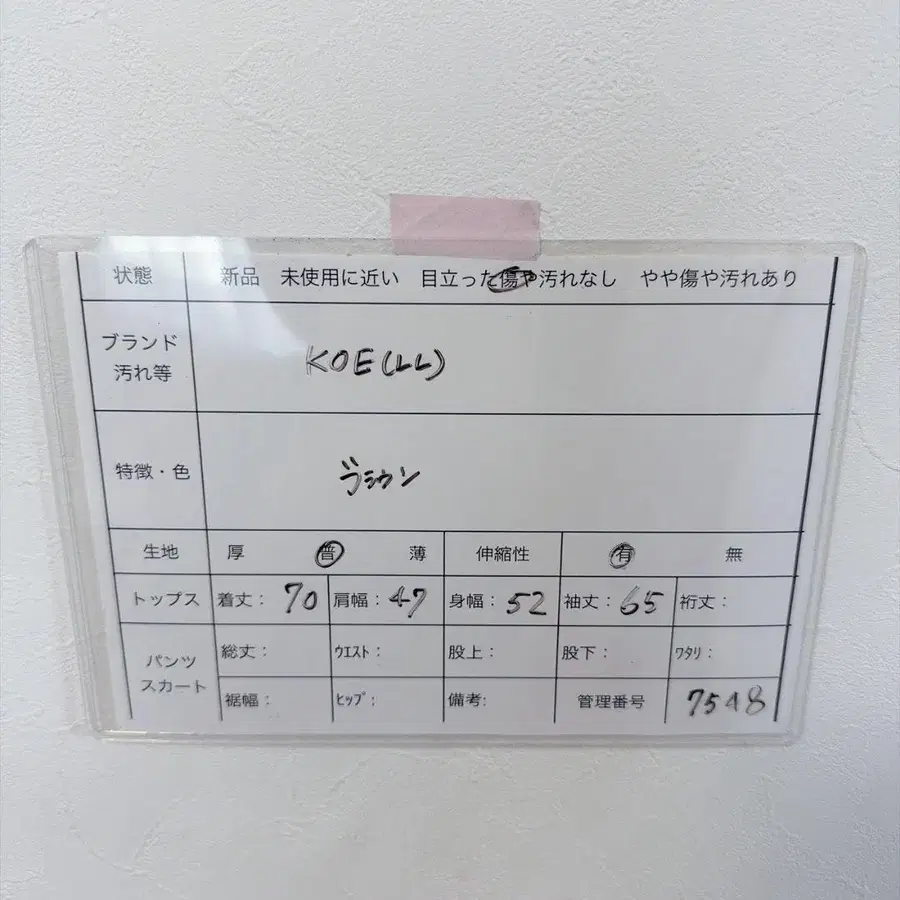 状態 新品 未使用に近い 目立った傷や汚れなし やや傷や汚れあり
ブランド
汚れ等
KOE(LL)
特徴・色 ブラウン
生地 厚 普 薄 伸縮性 有 無
トップス 着丈: 70 肩幅: 47 身幅: 52 袖丈: 65 裄丈:
パンツ
スカート
総丈: ウエスト: 股上: 股下: ワタリ:
裾幅: ヒップ: 備考: 管理番号 7548